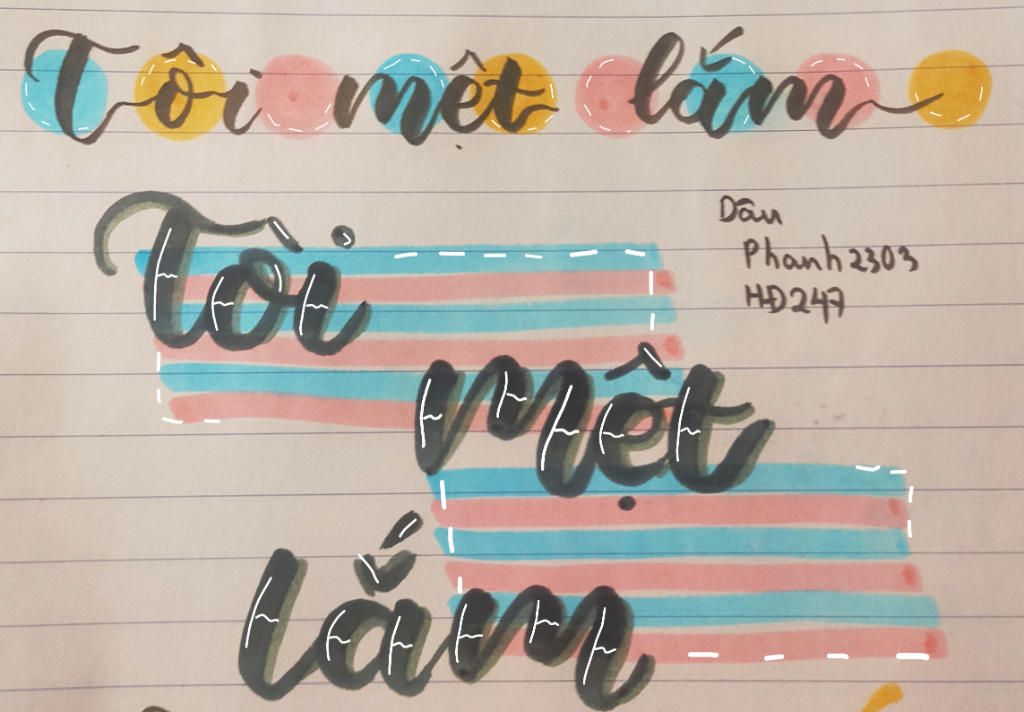 Tôi mệt lắm
Tòi
mệt
lắm
Dâu
Phanh2303
HĐ247